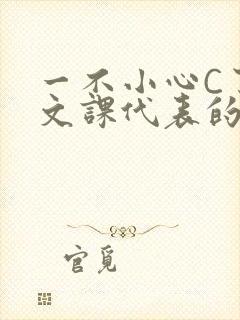 一不小心C
文課代表的
官覓